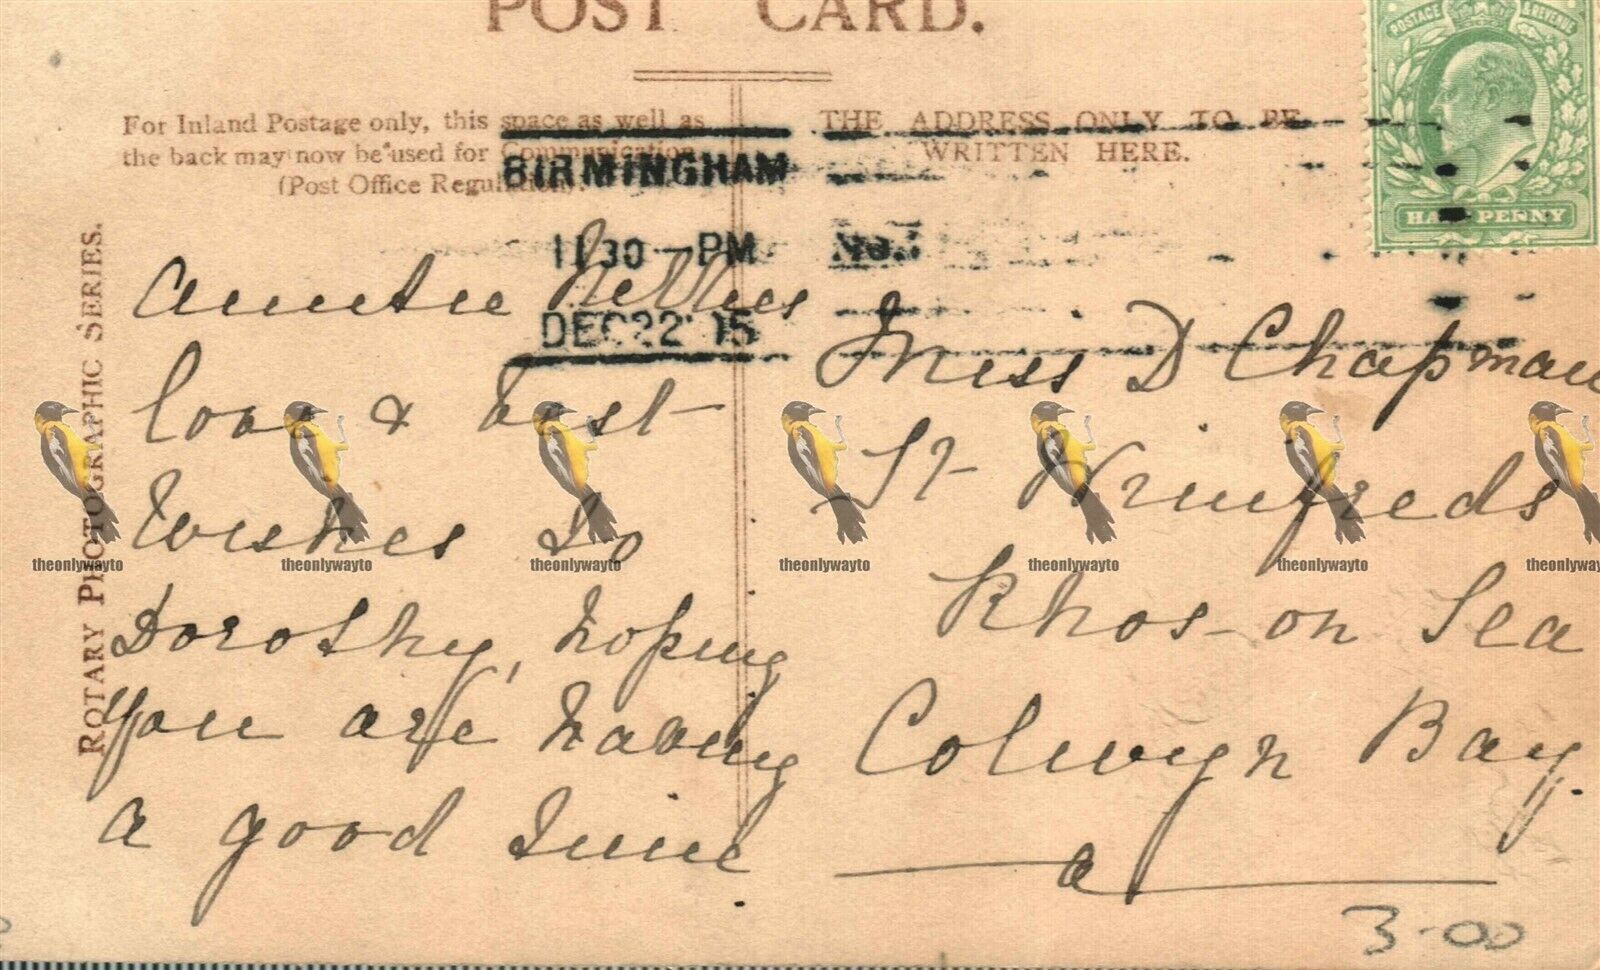 POST CARD.
POSTAGE & REVENUE
HALFPENNY
For Inland Postage only, this space as well as
the back may now be used for Communication
(Post Office Regulation).
THE ADDRESS ONLY TO BE
WRITTEN HERE.
BIRMINGHAM
11 30 - PM
DEC 22 15
ROTARY PHOTOGRAPHIC SERIES.
Auntie Nellies
love & best
wishes to
Dorothy, hoping
you are having
a good time.
Miss D Chapman
St Winifreds
Rhos-on Sea
Colwyn Bay.
a
3-00
theonlywayto theonlywayto theonlywayto theonlywayto theonlywayto theonlywayto theonlywayto